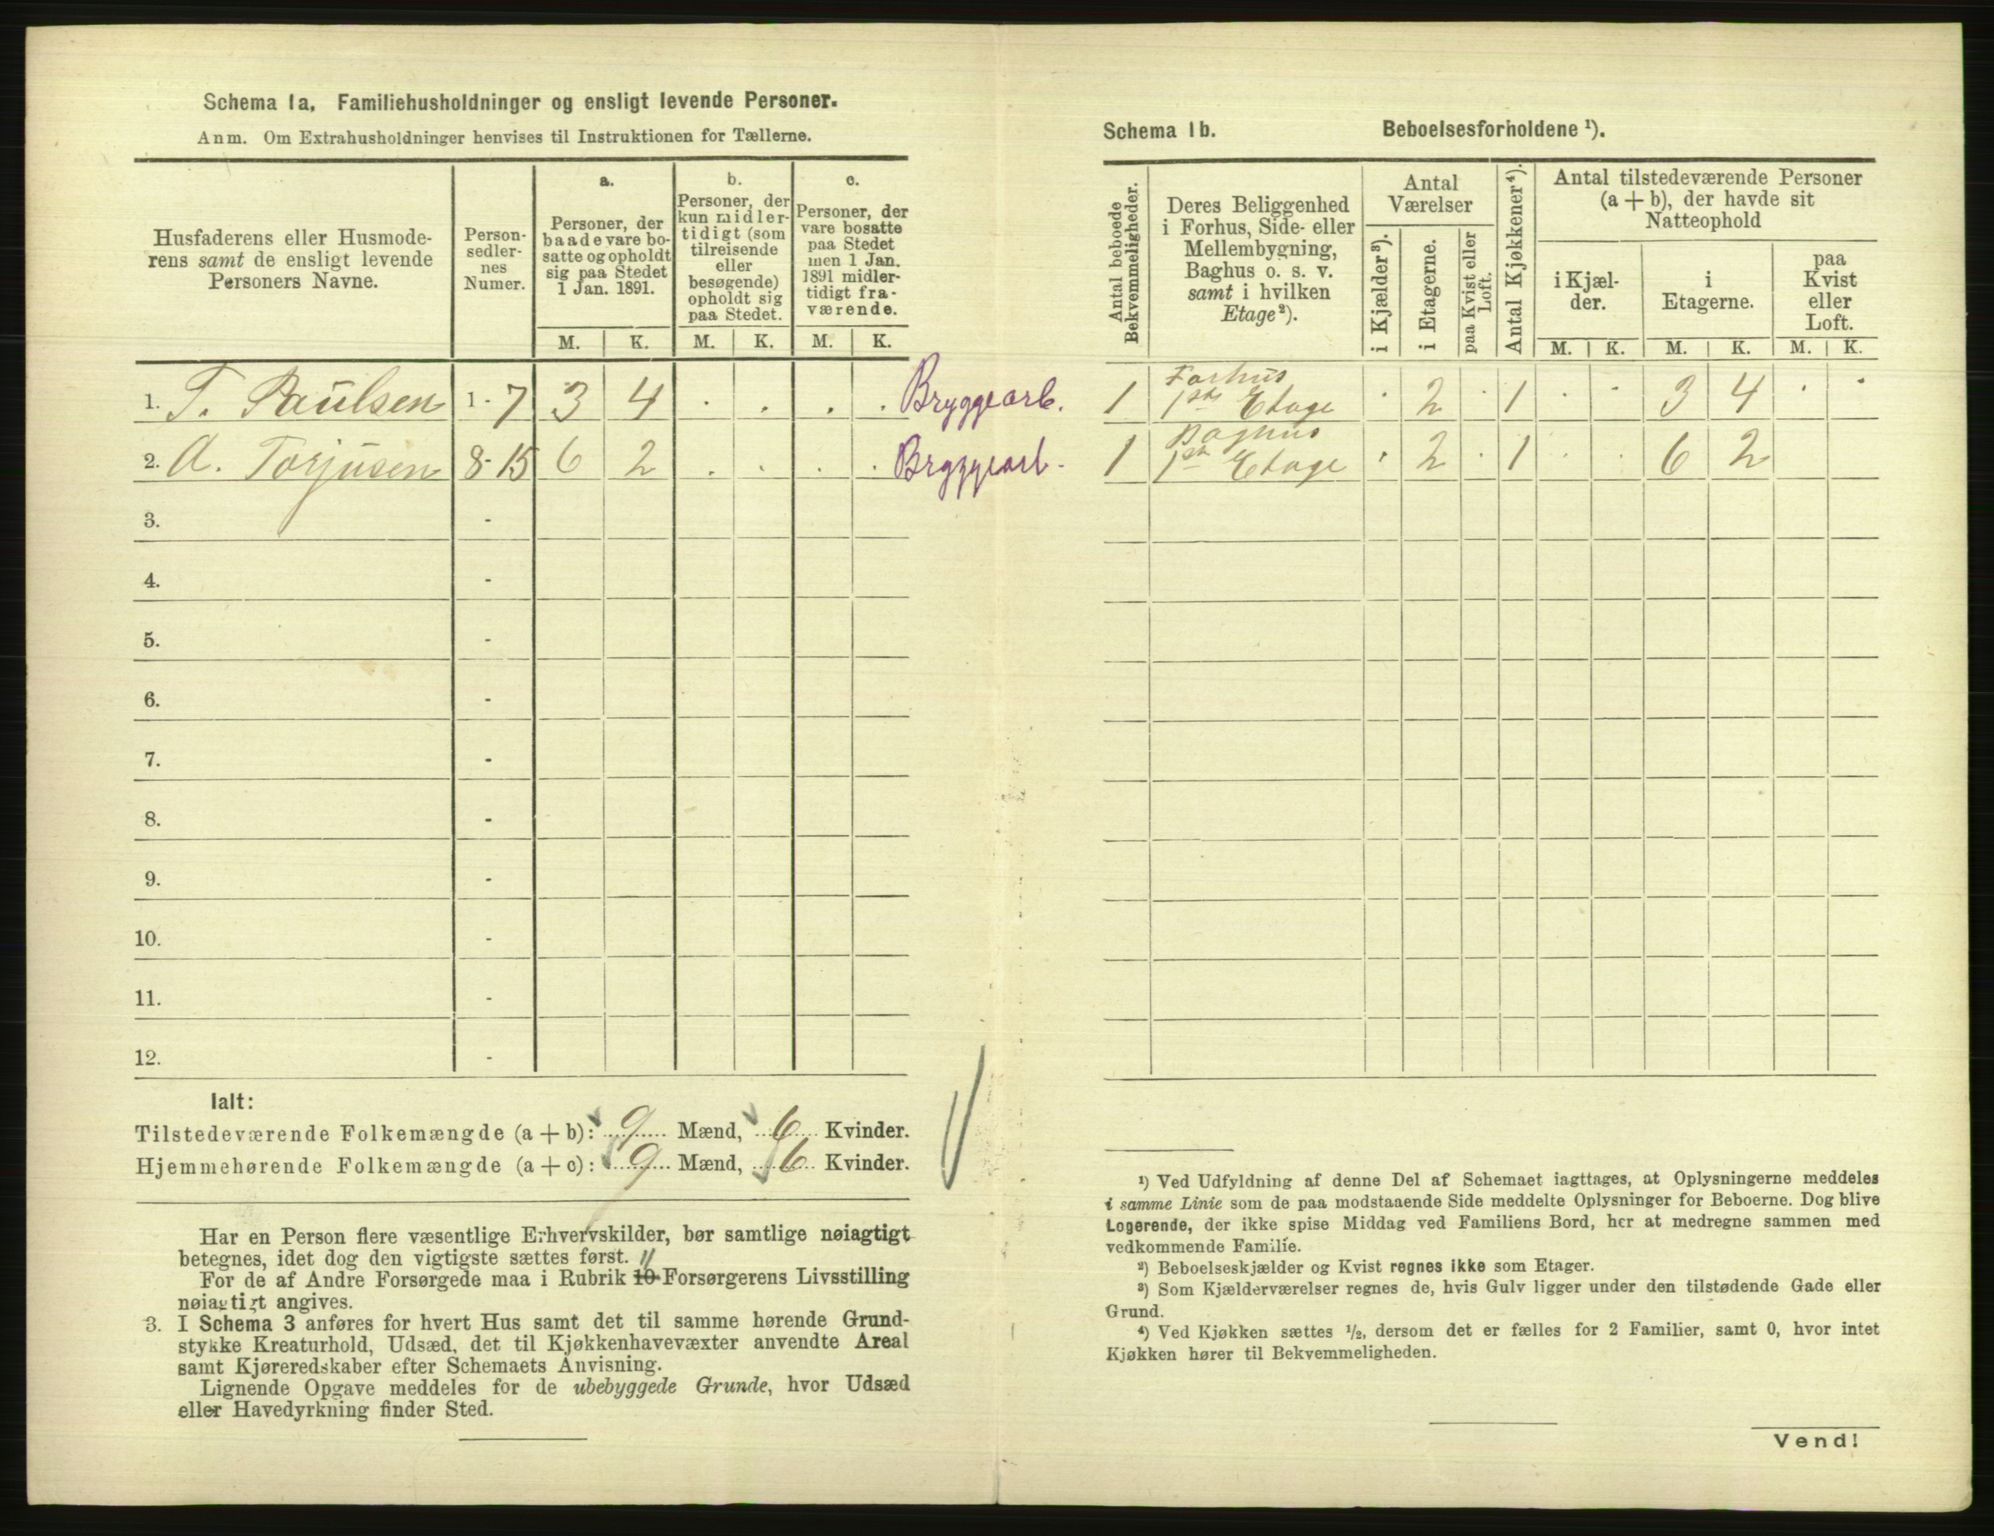 Schema 1a, Familiehusholdninger og ensligt levende Personer.
Anm. Om Extrahusholdninger henvises til Instruktionen for Tællerne.
Husfaderens eller Husmode-
rens samt de ensligt levende
Personers Navne.
Person-
sedler-
nes
Numer.
a.
Personer, der
baade vare bo-
satte og opholdt
sig paa Stedet
1 Jan. 1891.
b.
Personer, der
kun midler-
tidigt (som
tilreisende
eller
besøgende)
opholdt sig
paa Stedet.
c.
Personer, der
vare bosatte
paa Stedet
men 1 Jan.
1891 midler-
tidigt fra-
værende.
M. K. M. K. M. K.
1. T. Paulsen 1 - 7 3 4 . . . . Bryggearb.
2. A. Torjusen 8 - 15 6 2 . . . . Bryggearb.
3. -
4. -
5. -
6. -
7. -
8. -
9. -
10. -
11. -
12. -
Ialt:
Tilstedeværende Folkemængde (a + b): 9 Mænd, 6 Kvinder.
Hjemmehørende Folkemængde (a + c): 9 Mænd, 6 Kvinder.
Har en Person flere væsentlige Erhvervskilder, bør samtlige nøiagtigt
betegnes, idet dog den vigtigste sættes først.
11
For de af Andre Forsørgede maa i Rubrik 10 Forsørgerens Livsstilling
nøiagtigt angives.
3. I Schema 3 anføres for hvert Hus samt det til samme hørende Grund-
stykke Kreaturhold, Udsæd, det til Kjøkkenhavevæxter anvendte Areal
samt Kjøreredskaber efter Schemaets Anvisning.
Lignende Opgave meddeles for de ubebyggede Grunde, hvor Udsæd
eller Havedyrkning finder Sted.
Schema 1b. Beboelsesforholdene ¹).
Antal beboede
Bekvemmeligheder.
Deres Beliggenhed
i Forhus, Side- eller
Mellembygning,
Baghus o. s. v.
samt i hvilken
Etage²).
Antal
Værelser
i Kjælder³).
i Etagerne.
paa Kvist eller
Loft.
Antal Kjøkkener⁴).
Antal tilstedeværende Personer
(a + b), der havde sit
Natteophold
i Kjæl-
der.
i
Etagerne.
paa
Kvist
eller
Loft.
M. K. M. K. M. K.
1 Forhus
1ste Etage . 2 . 1 . . 3 4 . .
1 Baghus
1ste Etage . 2 . 1 . . 6 2
¹) Ved Udfyldning af denne Del af Schemaet iagttages, at Oplysningerne meddeles
i samme Linie som de paa modstaaende Side meddelte Oplysninger for Beboerne. Dog blive
Logerende, der ikke spise Middag ved Familiens Bord, her at medregne sammen med
vedkommende Familie.
²) Beboelseskjælder og Kvist regnes ikke som Etager.
³) Som Kjælderværelser regnes de, hvis Gulv ligger under den tilstødende Gade eller
Grund.
⁴) Ved Kjøkken sættes ½, dersom det er fælles for 2 Familier, samt 0, hvor intet
Kjøkken hører til Bekvemmeligheden.
Vend!